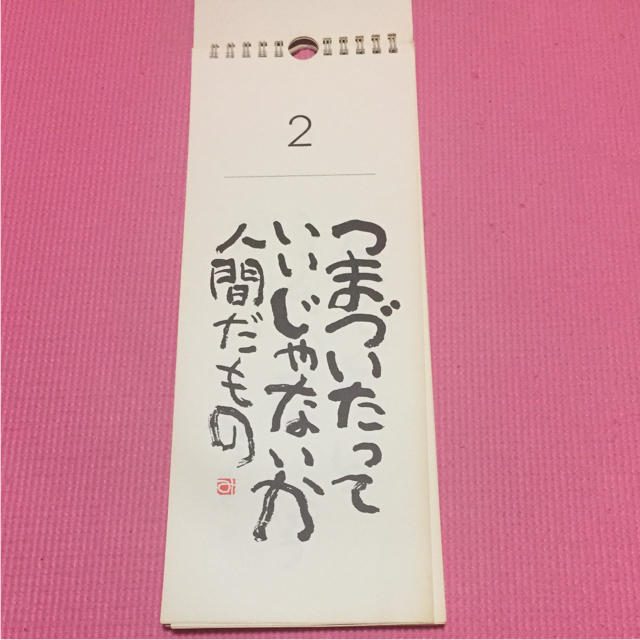 2
つまづいたって
いいじゃないか
人間だもの